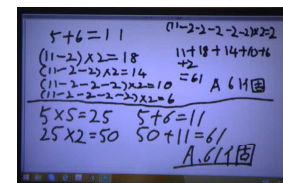 5+6=11
(11-2)×2=18
(11-2-2)×2=14
(11-2-2-2)×2=10
(11-2-2-2-2)×2=6
(11-2-2-2-2-2)×2=2
11+18+14+10+6
+2
=61
A 61個
5×5=25 5+6=11
25×2=50 50+11=61
A.61個